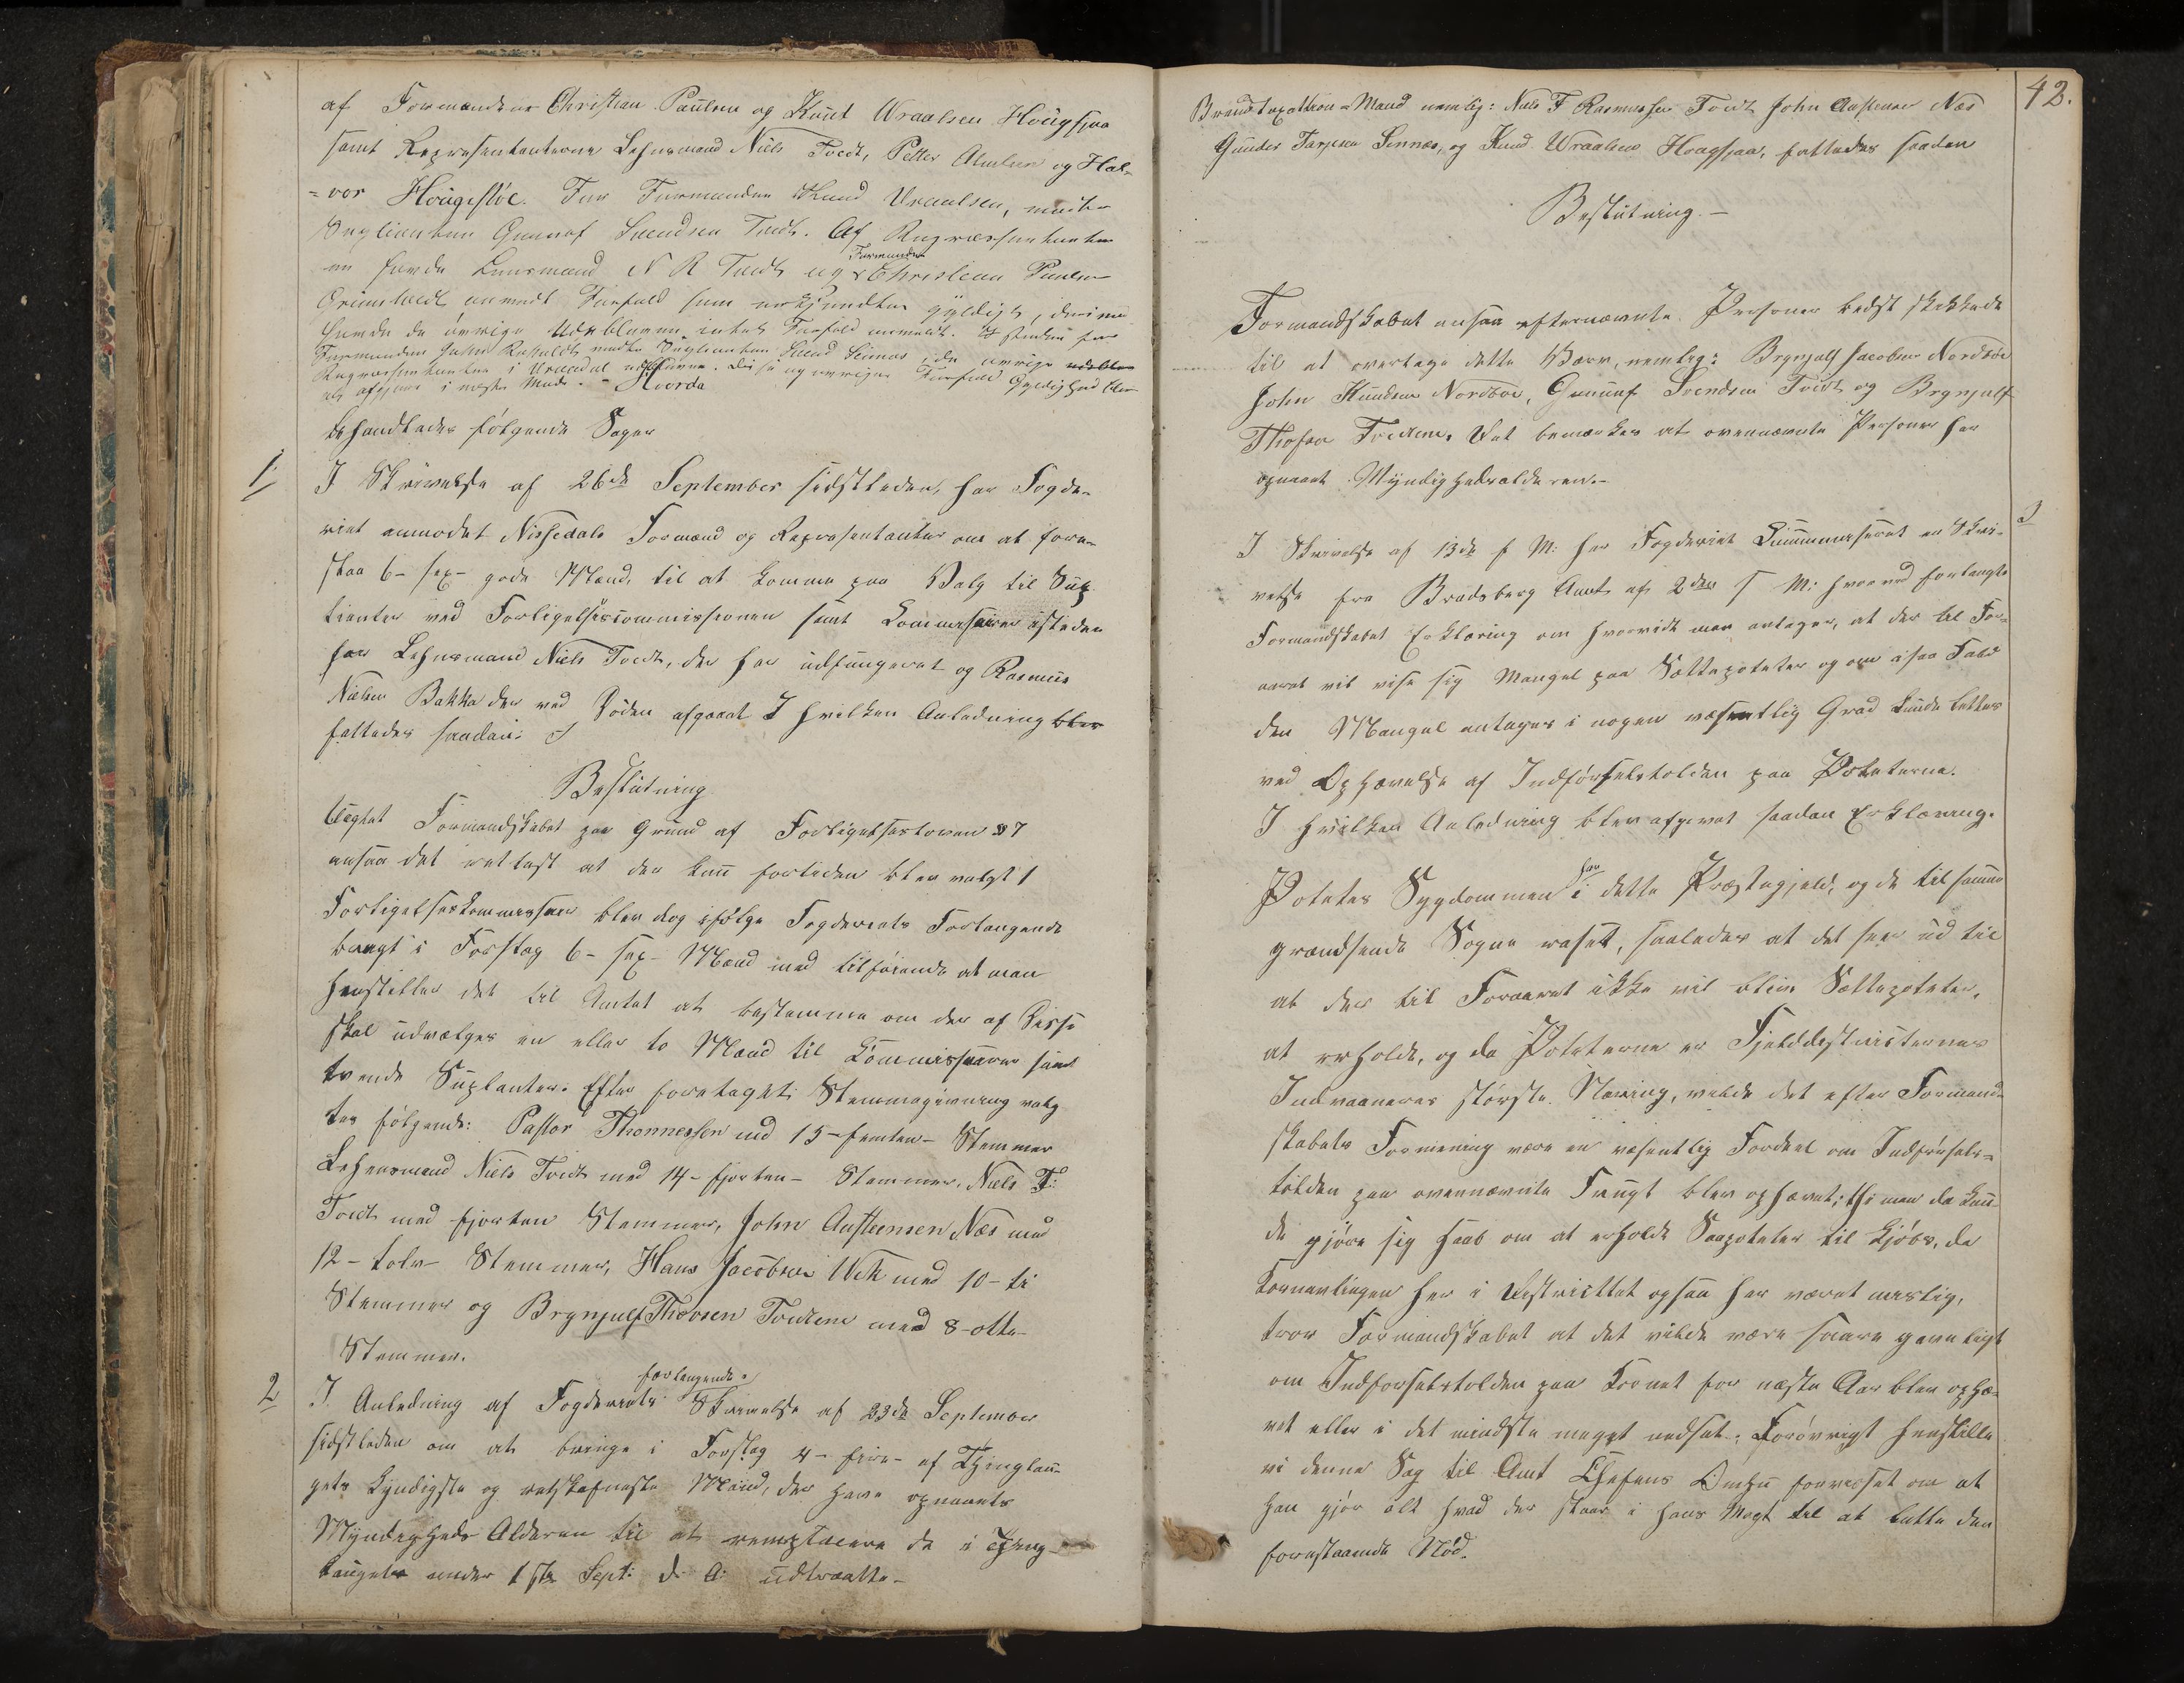 af Formændene Christian Paulsen og Knut Wraalsen Hougsjaa
samt Repræsentanterne Lehnsmand Niels Tvedt, Petter Atmelen og Hal-
=vor Hougsløe. For Formanden Knud Vraalsen, mødte
Suplianten Gunuf Svendsen Tvedt. Af Repræsentanter
ne havde Lensmand N R Tvedt og Formanden Christian Paulsen
Grimstvedt anmeldt Forfald som erkjendtes gyldigt, derimod
havde de øvrige Udeblevne intet Forfald anmeldt. Istedenfor
Formanden John Rolvaldt mødte Suplianten Svend Seimos, de øvrige
Repræsentanter i Vraadal udbleve. Disse og øvriges Forfalds Gyldighed blev
at afgjøre i næste Møde. - Hvorda
behandledes følgende Sager
1/
I Skrivelse af 26de September sidstleden, har Fogde-
riet anmodet Nissedals Formænd og Repræsentanter om at fore-
slaa 6 - sex - gode Mænd, til at komme paa Valg til Sup-
lianter ved Forligelsescommissionen samt Commissairer isteden
for Lehnsmand Niels Tvedt, der har udfungeret og Rasmus
Nielsen Bakka der ved Døden afgaaet I hvilken Anledning blev
fattedes saadan:
Beslutning
Uagtet Formandskabet paa Grund af Forligelsesloven § 7
ansaa det rettest at der kun forleden blev valgt 1
Forligelseskommissær blev dog ifølge Fogderiets Forlangende
bragt i Forslag 6 - sex - Mænd med tilføiende at man
henstiller det til Amtet at bestemme om der af disse
skal udvælges en eller to Mænd til Kommissærer samt
tvende Suplanter. Efter foretaget Stemmegivning valg
tes følgende: Pastor Thonnessen med 15 - femten - Stemmer
Lehensmand Niels Tvedt med 14 - fjorten - Stemmer, Niels T:
Tvedt med fjorten Stemmer, John Austensen Næs med
12 - tolv - Stemmer, Hans Jacobsen Wek med 10 - ti
Stemmer og Brynjulf Thovsen Tveitene med 8 - otte -
Stemmer.
2
forlangende
I Anledning af Fogderiets Skrivelse af 23de September
sidstleden om at bringe i Forslag 4 - fire - af Thinglau-
gets kyndigste og retskafneste Mænd, der have opnaaet
Myndigheds Alderen til at remplacere de i Thing-
lauget under 1ste Sept: d. A. udtraadte -
42.
Brandtaxations-Mænd nemlig: Niels F Rasmussen Tvedt John Austensen Næs
Gunder Tarjesen Sinnæs, og Knud Wraalsen Hougsjaa, fattedes saadan
Beslutning. -
Formandskabet ansaa efternævnte Personer bedst skikkede
til at overtage dette Hværv, nemlig: Brynjulf Jacobsen Nordbøe
John Knudsen Nordbøe, Gunnuf Svendsen Tvedt og Brynjulf
Thofsen Tveitene. Det bemærkes at ovennævnte Personer har
opnaaet Myndighedsalderen. -
3
I Skrivelse af 13de f M: har Fogderiet Kummuniseret en Skri-
velse fra Bradsberg Amt af 2den s M: hvorved forlangtes
Formandskabet Erklæring om hvorvidt man antager, at der til For-
aaret vil vise sig Mangel paa Sættepoteter og om i saa Fald
den Mangel antages i nogen væsentlig Grad kunde lettes
ved Ophævelse af Indførselstolden paa Poteterne.
I hvilken Anledning blev afgivet saadan Erklæring.
Potetes Sygdommen har i dette Præstegjeld, og de tilsammen
grændsende Sogne raset, saaledes at det seer ud til
at der til Foraaret ikke vil blive Sættepoteter,
at erholde, og da Poteterne er Fjelddistricternes
Indvaaneres største Næring, vilde det efter Formand-
skabets Formening være en væsentlig Fordeel om Indførsels=
tolden paa ovennævnte Frugt blev ophævet; thi man da kun-
de gjøre sig Haab om at erholde Saapoteter til Kjøbs, da
Kornavlingen her i Districttet ogsaa har været maslig,
tror Formandskabet at det vilde være saare gavnligt
om Indførselstolden paa Kornet for næste Aar blev ophæ-
vet eller i det mindste meget nedsat; Forøvrigt henstille
vi denne Sag til Amt Chefens Omhu forvisset om at
han gjør alt hvad der staar i hans Magt til at lette den
forestaaende Nød.